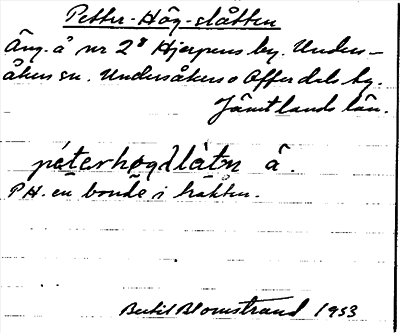 Petter-Hög-slåtten
Äng. å nr 2⁸ Hjerpens by. Unders-
åkers sn. Undersåkers o Offerdals tg.
Jämtlands län.
pèterhögslåtn â.
P H. en bonde i trakten.
Bertil Blomstrand 1953